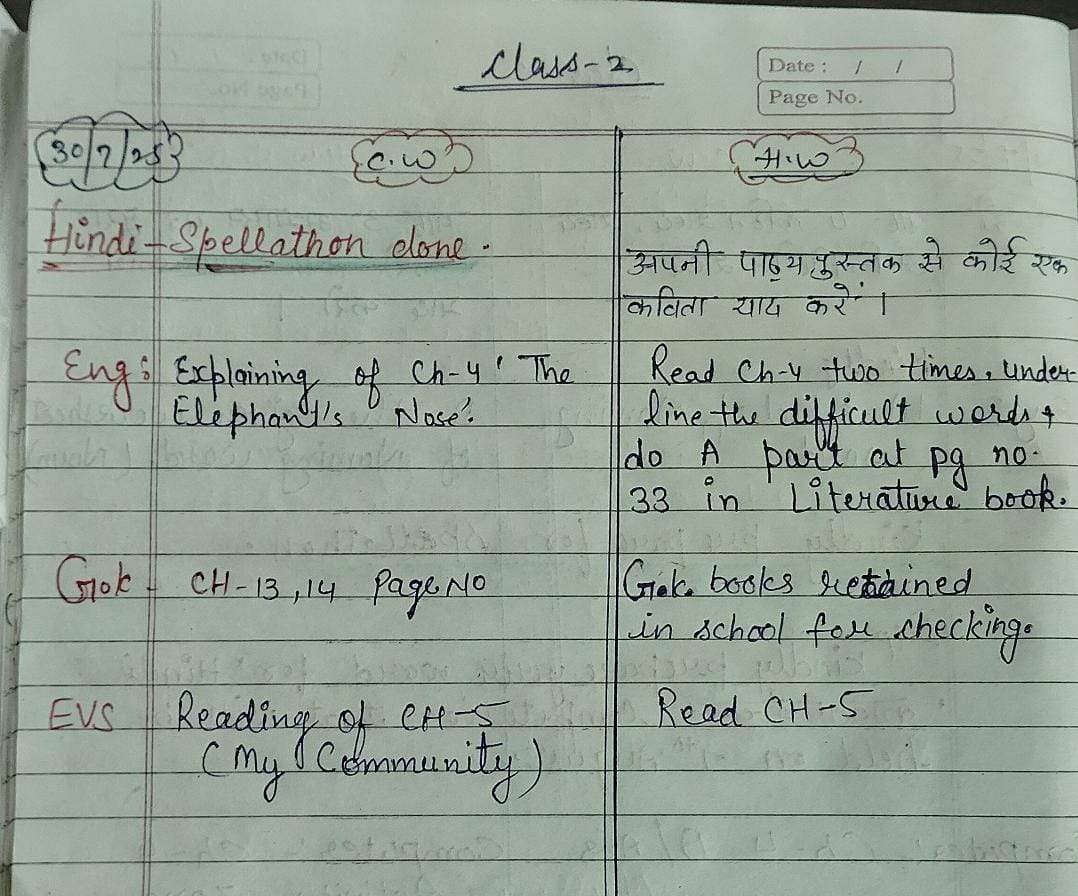 Class-2
Date : / /
Page No.
30/7/25 C.W H.W
Hindi - Spellathon done.
अपनी पाठ्य पुस्तक से कोई एक
कविता याद करें।
Eng: Explaining of Ch-4 ' The
Elephant's Nose'.
Read Ch-4 two times, under-
line the difficult words &
do A part at pg no.
33 in Literature book.
G.K - CH-13,14 Page No
G.K. books retained
in school for checking.
EVS Reading of CH-5
(My Community)
Read CH-5